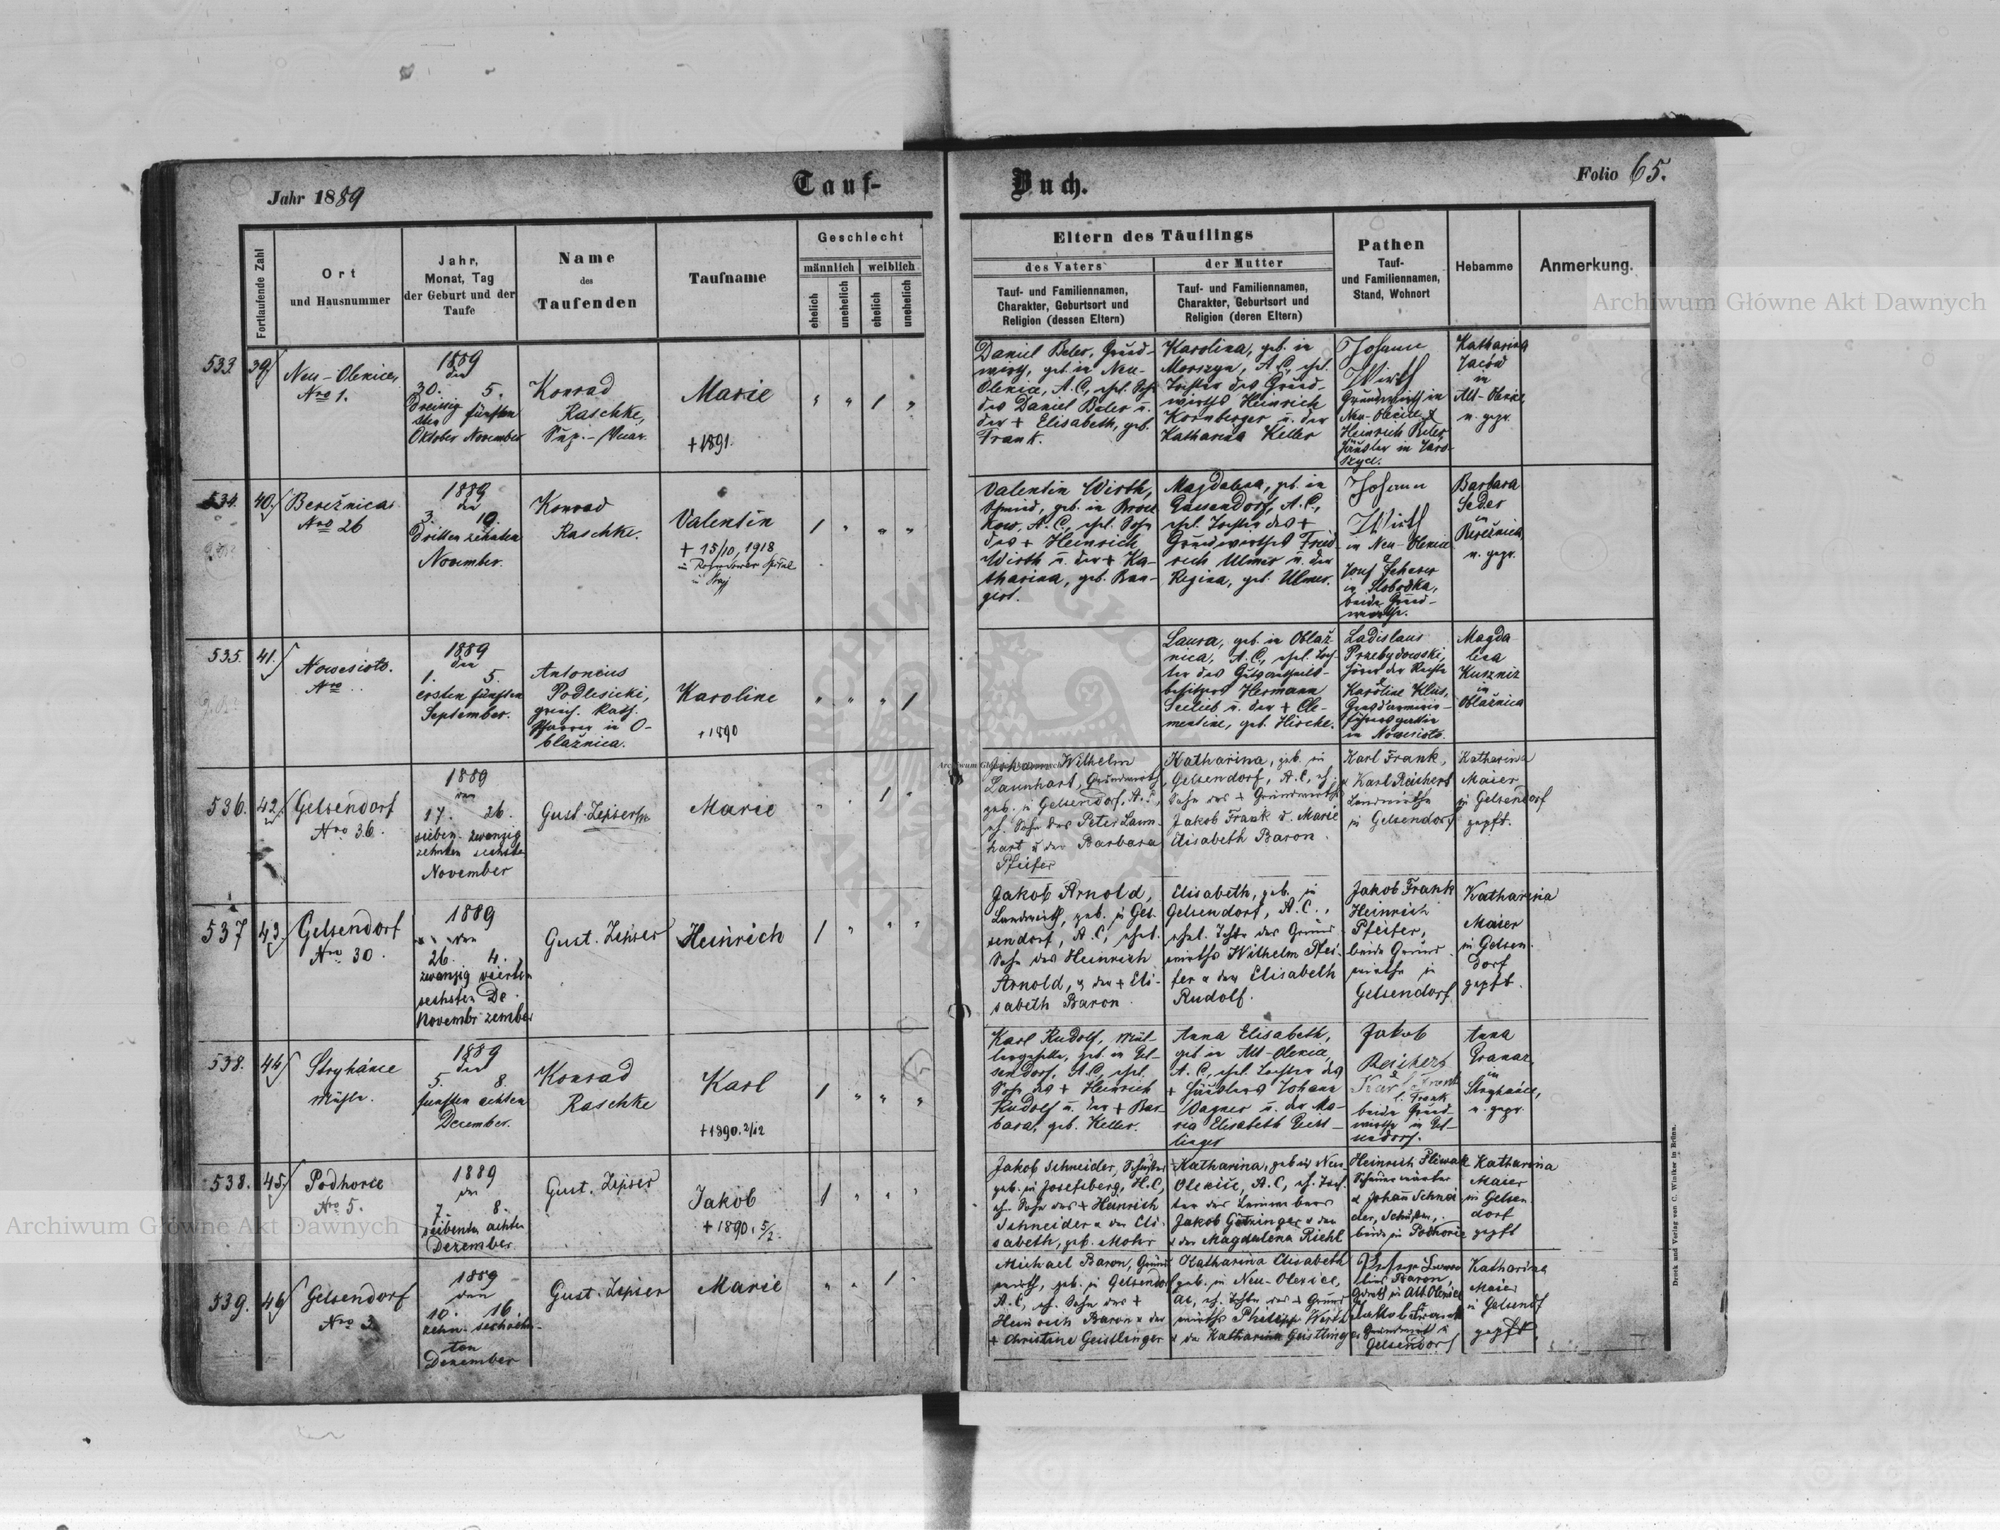 Jahr 1889
Tauf-
Buch.
Folio 65.
Fortlaufende Zahl
Ort
und Hausnummer
Jahr,
Monat, Tag
der Geburt und der
Taufe
Name
des
Taufenden
Taufname
Geschlecht
männlich
weiblich
ehelich
unehelich
ehelich
unehelich
Eltern des Täuflings
des Vaters
der Mutter
Tauf- und Familiennamen,
Charakter, Geburtsort und
Religion (dessen Eltern)
Tauf- und Familiennamen,
Charakter, Geburtsort und
Religion (deren Eltern)
Pathen
Tauf-
und Familiennamen,
Stand, Wohnort
Hebamme
Anmerkung.
533 39
Nro 1.
1889
den
30. 5.
Dreissig fünften
sten
Oktober November
Konrad
Raschke,
Marie
+ 1891.
Daniel Beler, Grund-
wirth, geb. in Neu-
Olexice, A.C., ehel. Sohn
des Daniel Beler u.
der + Elisabeth, geb.
Frank.
Karolina, geb. in
Morszyn, A.C., ehel.
Tochter des Grund-
wirths Heinrich
Kornberger u. der
Katharina Keller
Johann
Wirth
Grundwirth in
Heinrich Beler,
Katharina
in
u. gepr.
534 40.
Bereźnica
Nro 26
1889
den
3. 10.
Dritten zehnten
November.
Konrad
Raschke.
Valentin
+ 15/10, 1918
Valentin Wirth,
Schmied, geb. in
A.C., ehel. Sohn
des + Heinrich
Wirth u. der + Ka-
tharina, geb. Ban-
gert.
Magdalena, geb. in
A.C.,
ehel. Tochter des +
Grundwirthes Fried-
rich Ulmer u. der
Regina, geb. Ulmer.
Johann
Wirth
in Neu-Olexice
in Slobodka,
beide Grund-
wirthe.
Barbara
Seder
in
Bereźnica
u. gepr.
535. 41.
Nowesioło.
Nro ..
1889
den
1. 5.
ersten fünften
September.
Antonius
Podlesicki,
griech. kath.
Pfarrer in O-
blaźnica.
Karoline
+ 1890
Laura, geb. in Oblaź-
nica, A.C., ehel. Toch-
ter des Gutsantheils-
besitzers Hermann
u. der + Cle-
mentine, geb. Hirche.
Ladislaus
Przebydowski,
Hörer der Rechte
&
Karoline Klus,
Gendarmerie-
führersgattin
in Nowesioło.
Magda-
lena
Kuszniz
in
Oblaźnica
536. 42.
Gelsendorf
Nro 36.
1889
den
17. 26.
sieben- zwanzig
zehnten sechsten
November
Gust. Zipser
Marie
Johann Wilhelm
Launhart, Grundwirth,
geb. in Gelsendorf, A.C.,
eh. Sohn des Peter Laun-
hart u der Barbara
Pfeifer
Katharina, geb. in
Gelsendorf, A.C., eh.
des + Grundwirths
Jakob Frank u. Marie
Elisabeth Baron.
Karl Frank,
u Karl Reichert
Landwirthe
in Gelsendorf
Katharina
Maier
in Gelsendorf
gepft.
537 43.
Gelsendorf
Nro 30.
1889
den
26. 4.
zwanzig vierten
sechsten De-
Novembr zember
Gust. Zipser
Heinrich
Jakob Arnold,
Landwirth, geb. in Gel-
sendorf, A.C., ehel.
Sohn des Heinrich
Arnold, u der + Eli-
sabeth Baron
Elisabeth, geb. in
Gelsendorf, A.C.,
ehel. Tchtr des Grund-
wirths Wilhelm Pfei-
fer u der Elisabeth
Rudolf.
Jakob Frank
u
Heinrich
Pfeifer,
beide Grund-
wirthe in
Gelsendorf
Katharina
Maier
in Gelsen-
dorf
gepft.
538. 44.
Stryhańce
Mühle.
1889
den
5. 8.
fünften achten
Dezember.
Konrad
Raschke
Karl
+ 1890. 2/12
Karl Rudolf, Mül-
lergeselle, geb. in Gel-
sendorf, A.C., ehel.
Sohn des + Heinrich
Rudolf u. der + Bar-
bara, geb. Keller.
Anna Elisabeth,
geb. in Alt-Olexice,
A.C., ehel. Tochter des
+ Häuslers Johann
Wagner u. der Ma-
ria Elisabeth Geist-
linger
Jakob
Reichert
&
Karl Frank
beide Grund-
wirthe in Gel-
sendorf.
Anna
in
Stryhańce,
u. gepr.
538. 45.
Podhorce
Nro 5.
1889
den
7. 8.
siebenten achten
Dezember
Gust. Zipser
Jakob
+ 1890. 5/2.
Jakob Schneider, Schuster
geb. in Josefsberg, H.C,
eh. Sohn des + Heinrich
Schneider u der Eli-
sabeth, geb. Mohr
Katharina, geb in Neu
Olexice, A.C., eh. Toch-
ter des
Jakob Götzinger u der
Magdalena Riehl
Heinrich
u Johann Schnei-
der, Schuster,
beide in Podhorce
Katharina
Maier
in Gelsen-
dorf
gepft
539. 46
Gelsendorf
Nro 3
1889
den
10. 16.
zehn- sechzehn-
ten
Dezember
Gust. Zipser
Marie
Michael Baron, Grund-
wirth, geb. in Gelsendorf
A.C., eh. Sohn des +
Heinrich Baron u der
+ Christine Geistlinger
Katharina Elisabeth
geb. in Neu-Olexice,
AC, eh. Tchtr des + Grund-
wirths Philipp Wirth
u der Katharina Geistlinger
Baron,
in Alt Olexice
Jakob Frank
Grundwirth in
Gelsendorf
Katharina
Maier
in Gelsendf
gepft.
Druck und Verlag von C. Winiker in Brünn.
Archiwum Główne Akt Dawnych
Archiwum Główne Akt Dawnych
Archiwum Główne Akt Dawnych